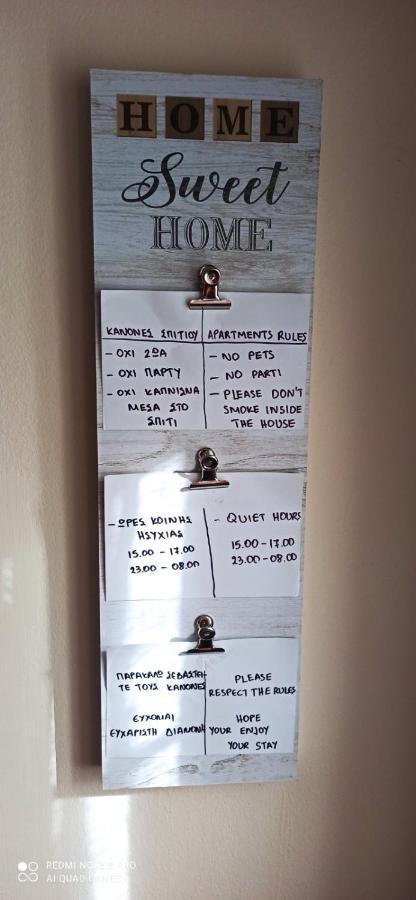 HOME
Sweet
HOME
ΚΑΝΟΝΕΣ ΣΠΙΤΙΟΥ
- ΟΧΙ ΖΩΑ
- ΟΧΙ ΠΑΡΤΥ
- ΟΧΙ ΚΑΠΝΙΣΜΑ
ΜΕΣΑ ΣΤΟ
ΣΠΙΤΙ
APARTMENTS RULES
- NO PETS
- NO PARTI
- PLEASE DON'T
SMOKE INSIDE
THE HOUSE
- ΩΡΕΣ ΚΟΙΝΗΣ
ΗΣΥΧΙΑΣ
15.00 - 17.00
23.00 - 08.00
- QUIET HOURS
15.00 - 17.00
23.00 - 08.00
ΠΑΡΑΚΑΛΩ ΣΕΒΑΣΤΗ-
ΤΕ ΤΟΥΣ ΚΑΝΟΝΕΣ
ΕΥΧΟΜΑΙ
ΕΥΧΑΡΙΣΤΗ ΔΙΑΜΟΝΗ
PLEASE
RESPECT THE RULES
HOPE
YOUR ENJOY
YOUR STAY
REDMI NOTE 8 PRO
AI QUAD CAMERA